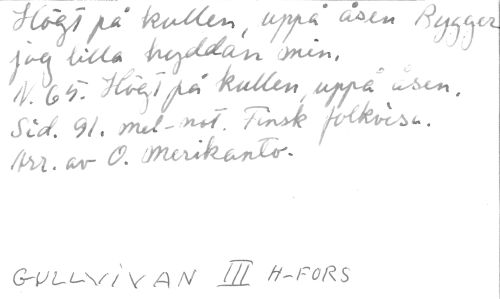 Högt på kullen, uppå åsen Bygger
jag lilla hyddan min.
N. 65. Högt på kullen, uppå åsen.
Sid. 91. mel-not. Finsk folkvisa.
Arr. av O. Merikanto.
GULLVIVAN III H-FORS